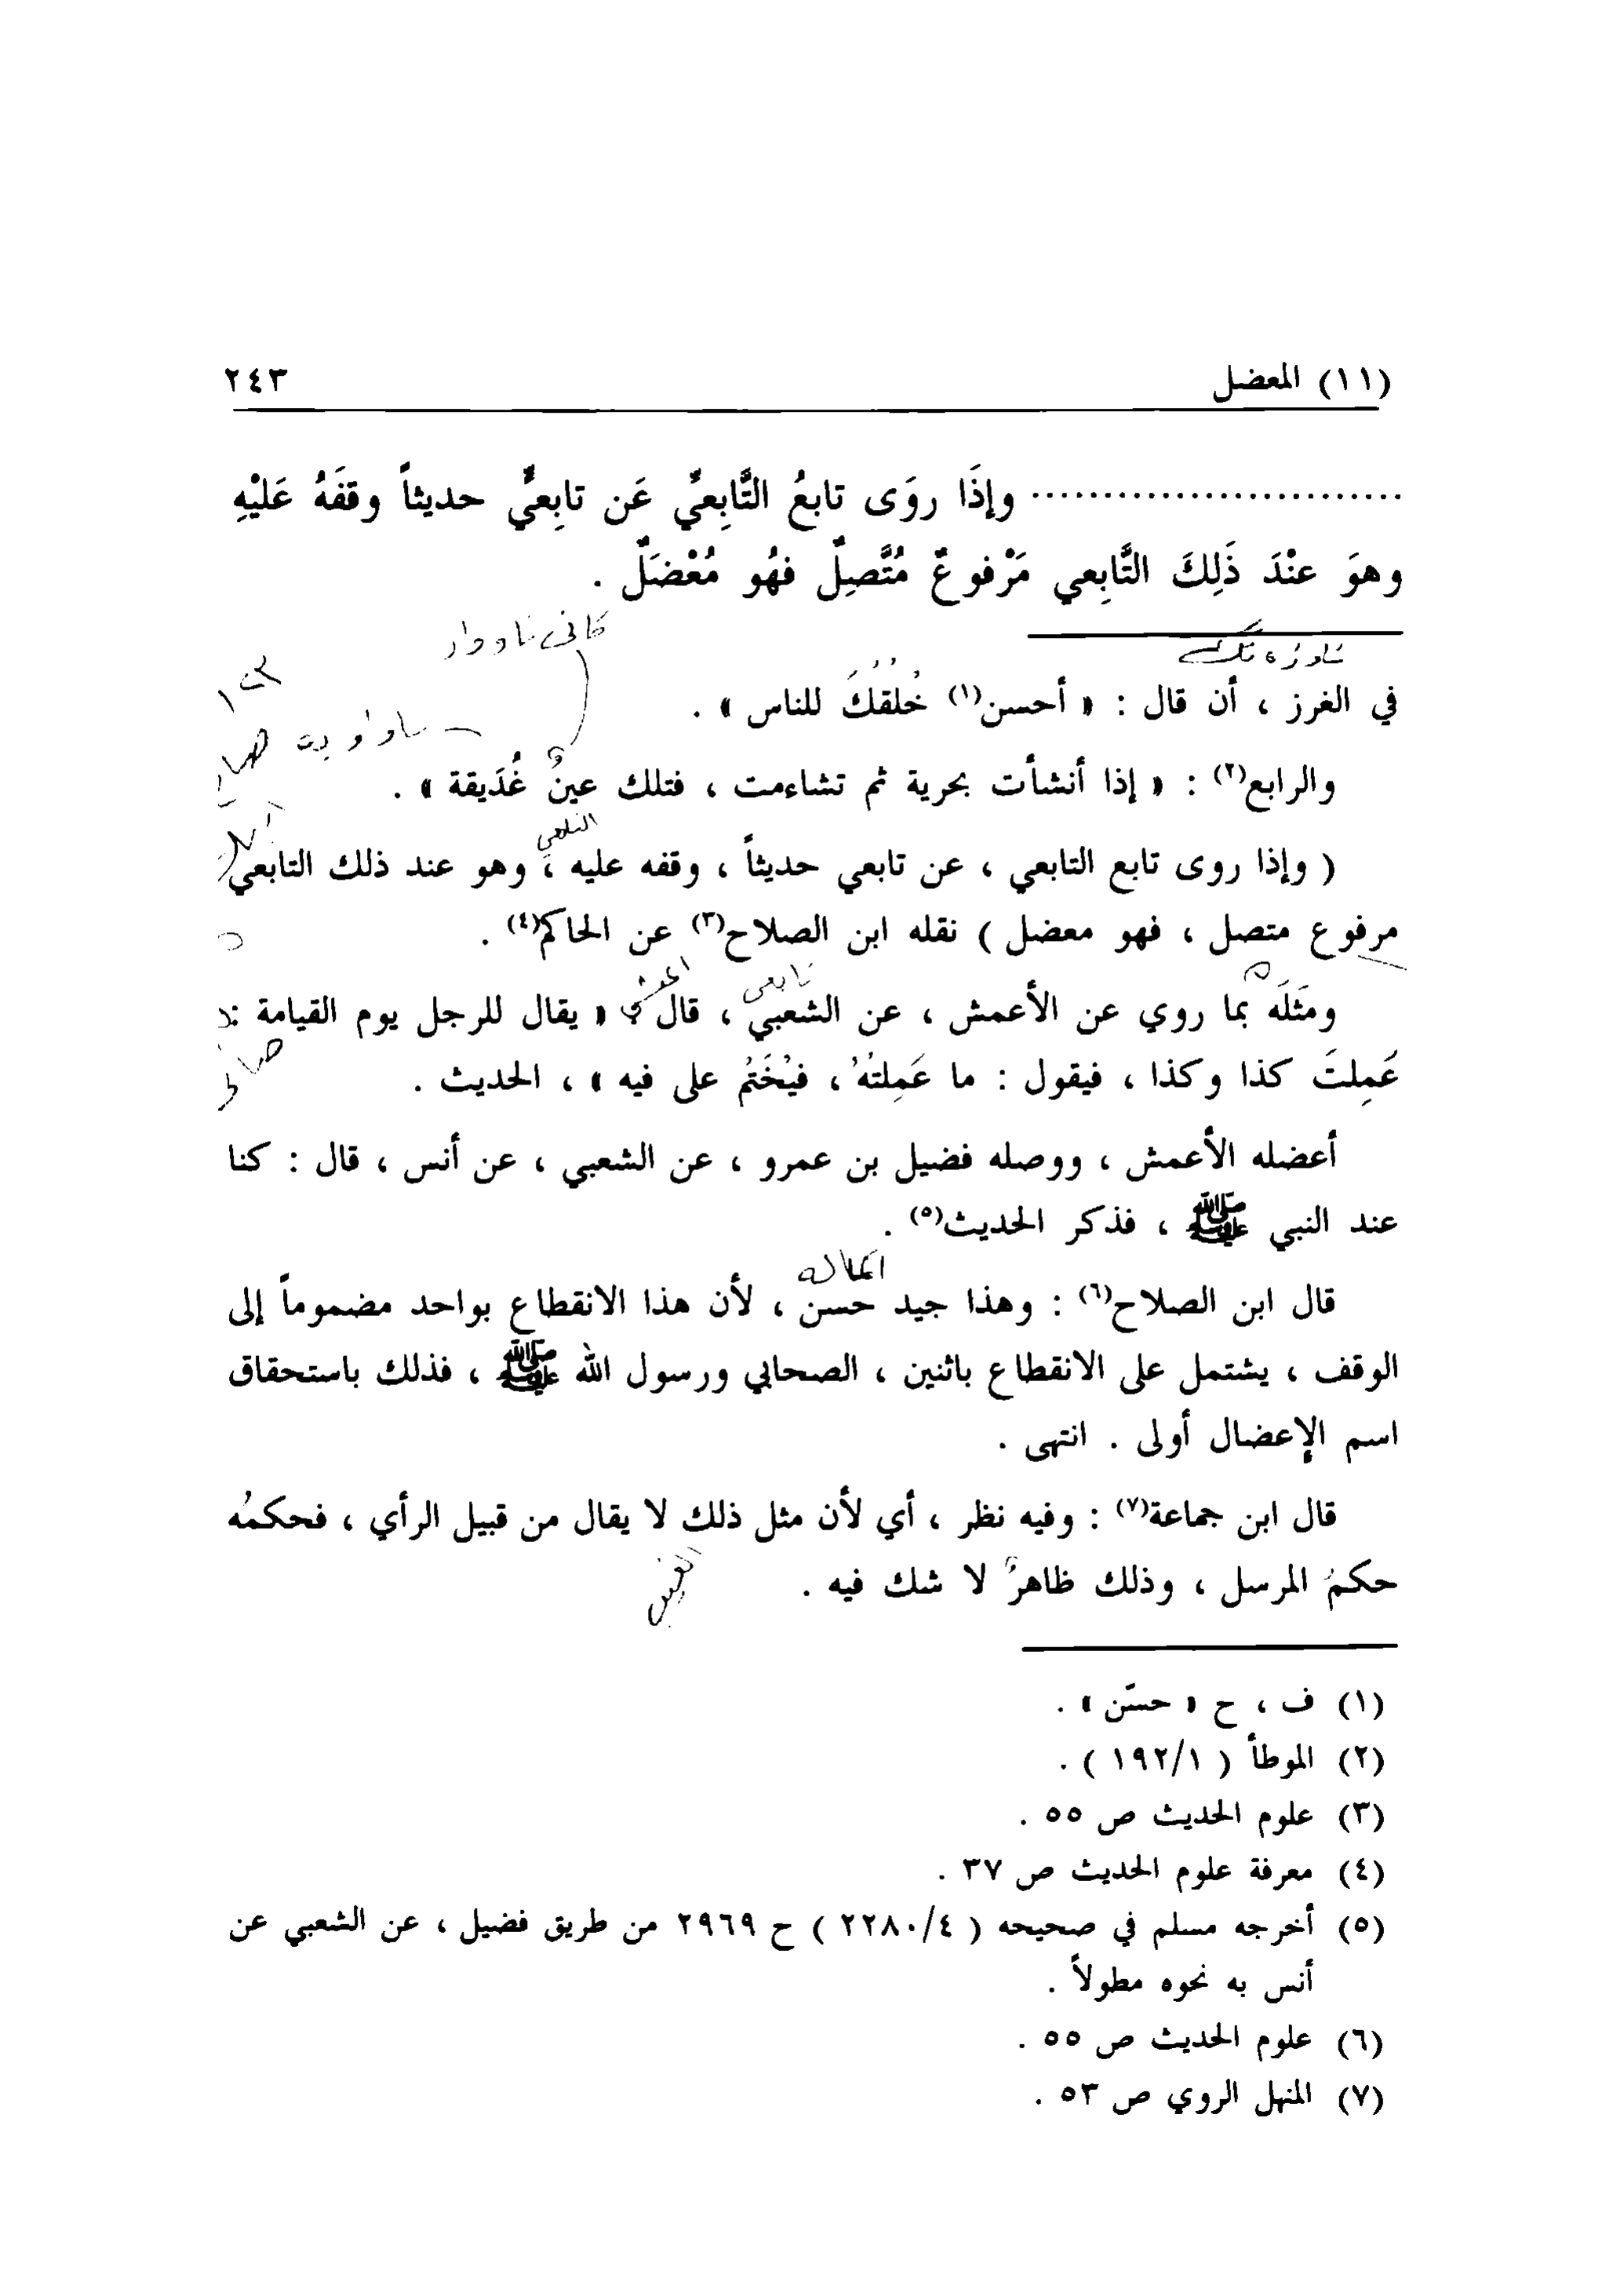 (١١) المعضل ٢٤٣
........................... وإذَا روَى تابعُ التَّابِعيِّ عَن تابِعيٍّ حديثاً وقفَهُ عَليْهِ
وهوَ عنْدَ ذَلِكَ التَّابِعي مَرْفوعٌ مُتَّصِلٌ فهُو مُعْضَلٌ .
في الغرز ، أن قال : « أحسن(١) خُلقكَ للناس » .
والرابع(٢) : « إذا أنشأت بحرية ثم تشاءمت ، فتلك عينٌ غُدَيقة » .
التابعي
( وإذا روى تابع التابعي ، عن تابعي حديثاً ، وقفه عليه ، وهو عند ذلك التابعي
مرفوع متصل ، فهو معضل ) نقله ابن الصلاح(٣) عن الحاكم(٤) .
تابعي
ومَثلَه بما روي عن الأعمش ، عن الشعبي ، قال : « يقال للرجل يوم القيامة :
عَمِلتَ كذا وكذا ، فيقول : ما عَمِلتُهُ ، فيُخْتَمُ على فيه » ، الحديث .
أعضله الأعمش ، ووصله فضيل بن عمرو ، عن الشعبي ، عن أنس ، قال : كنا
عند النبي ﷺ ، فذكر الحديث(٥) .
قال ابن الصلاح(٦) : وهذا جيد حسن ، لأن هذا الانقطاع بواحد مضموماً إلى
الوقف ، يشتمل على الانقطاع باثنين ، الصحابي ورسول الله ﷺ ، فذلك باستحقاق
اسم الإعضال أولى . انتهى .
قال ابن جماعة(٧) : وفيه نظر ، أي لأن مثل ذلك لا يقال من قبيل الرأي ، فحكمُه
حكمُ المرسل ، وذلك ظاهرٌ لا شك فيه .
الغيب
(١) ف ، ح « حسّن » .
(٢) الموطأ ( ١٩٢/١ ) .
(٣) علوم الحديث ص ٥٥ .
(٤) معرفة علوم الحديث ص ٣٧ .
(٥) أخرجه مسلم في صحيحه ( ٢٢٨٠/٤ ) ح ٢٩٦٩ من طريق فضيل ، عن الشعبي عن
أنس به نحوه مطولاً .
(٦) علوم الحديث ص ٥٥ .
(٧) المنهل الروي ص ٥٣ .